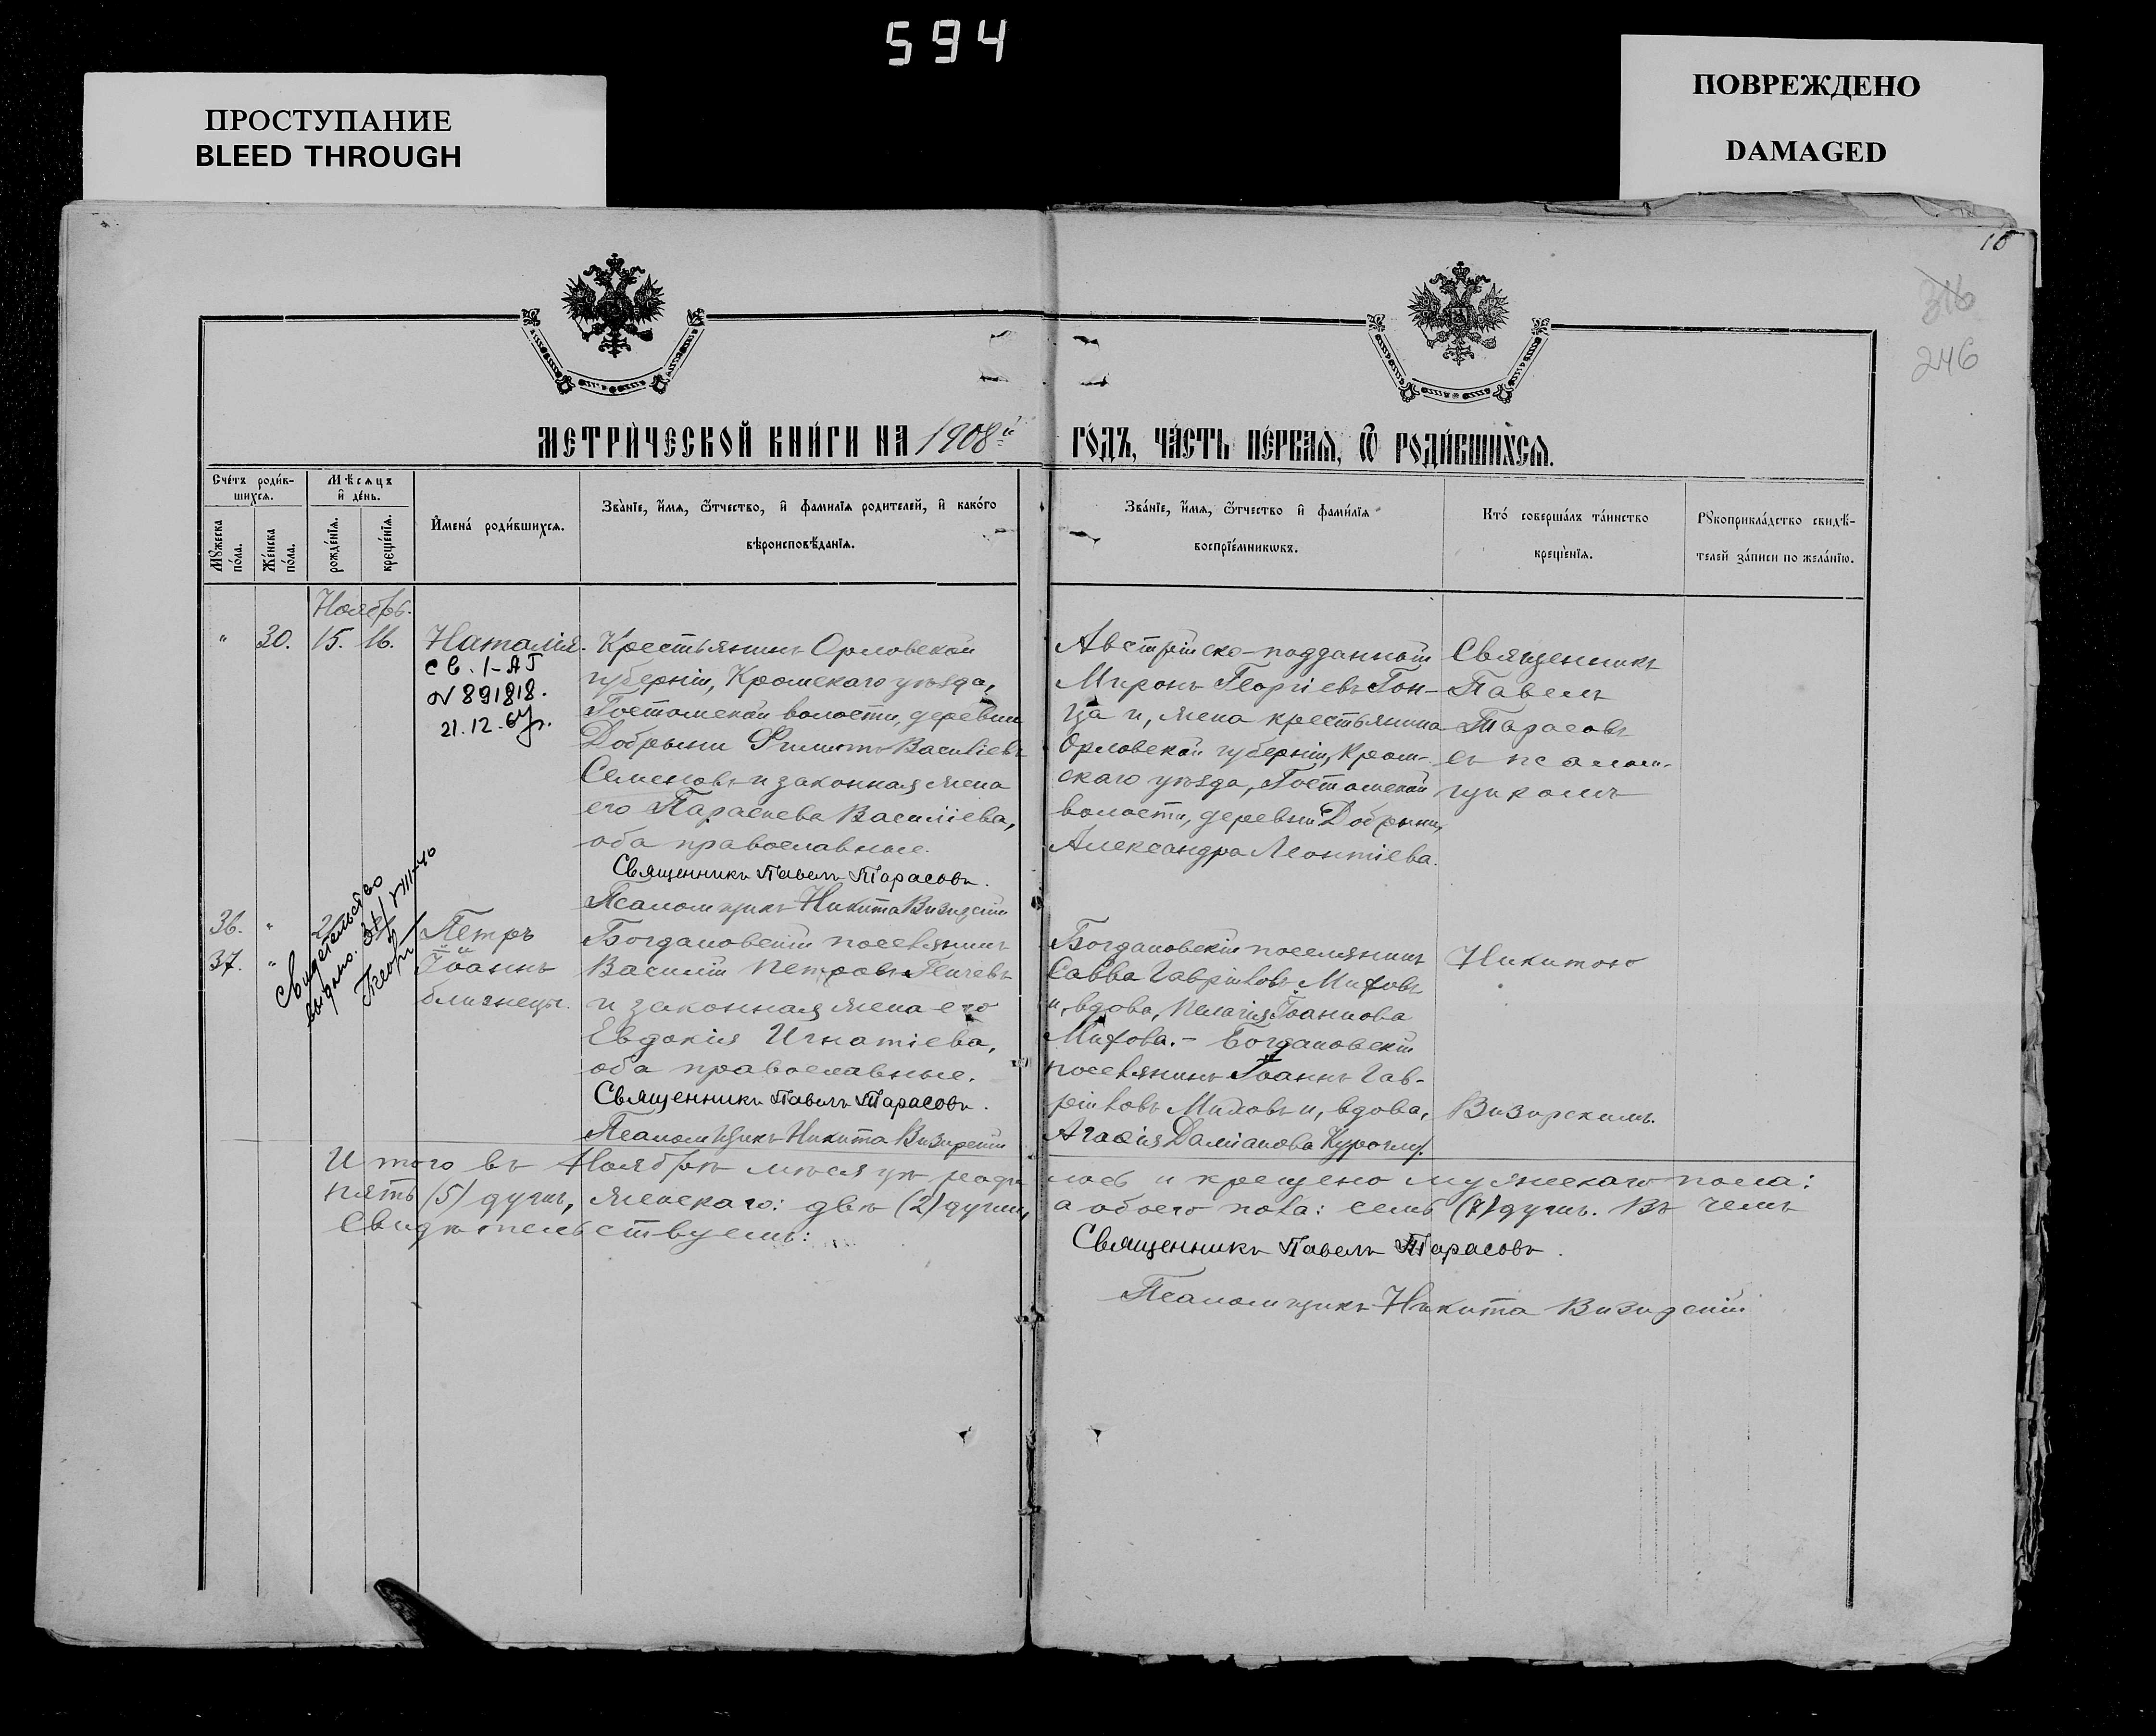 594
ПРОСТУПАНИЕ
BLEED THROUGH
ПОВРЕЖДЕНО
DAMAGED
10
316
246
МЕТРИЧЕСКОЙ КНИГИ НА 1908й ГОДЪ, ЧАСТЬ ПЕРВАѦ, Ѿ РОДИВШИХСѦ.
Счетъ родив-
шихсѧ.
Мѣсѧцъ
и день.
Мꙋжеска пола.
Женска пола.
рожденїѧ.
крещенїѧ.
Имена родившихсѧ.
Званїе, имѧ, ѿчество, и фамилїѧ родителей, и какого
вѣроисповѣданїѧ.
Званїе, имѧ, ѿчество и фамилїѧ
воспрїемникѡвъ.
Кто совершалъ таинство
крещенїѧ.
Рꙋкоприкладство свидѣ-
телей записи по желанїю.
Ноябрь.
" 30. 15. 16. Наталія.
Св. I-АГ
N 891818.
21.12.64г.
Крестьянинъ Орловской
губерніи, Кромскаго уѣзда,
Гостомской волости, деревни
Добрыни Филиппъ Василіевъ
Семеновъ и законная жена
его Параскева Василіева,
оба православные.
Священникъ Павелъ Тарасовъ.
Псаломщикъ Никита Визирскій
Австрійско-подданный
Миронъ Георгіевъ Гон-
ца и, жена крестьянина
Орловской губерніи, Кром-
скаго уѣзда, Гостомской
волости, деревни Добрыни,
Александра Леонтіева.
Священникъ
Павелъ
Тарасовъ
съ псалом-
щикомъ
36. "
37. "
Свидетельство
выдано. 31/VIII-40
Петръ
и
Іоаннъ
близнецы.
Богдановскій поселянинъ
Василій Петровъ Геничевъ
и законная жена его
Евдокія Игнатіева,
оба православные.
Священникъ Павелъ Тарасовъ.
Псаломщикъ Никита Визирскій
Богдановскій поселянинъ
Савва Гавріиловъ Миховъ
и, вдова, Пелагія Іоаннова
Михова. - Богдановскій
поселянинъ Іоаннъ Гав-
ріиловъ Миховъ и, вдова,
Агафія Даміанова
Никитою
Визирскимъ.
Итого въ Ноябрѣ мѣсяцѣ родилось и крещено мужескаго пола:
пять (5) душъ, женскаго: двѣ (2) души, а обоего пола: семь (7) душъ. Въ чемъ
свидѣтельствуемъ:
Священникъ Павелъ Тарасовъ.
Псаломщикъ Никита Визирскій